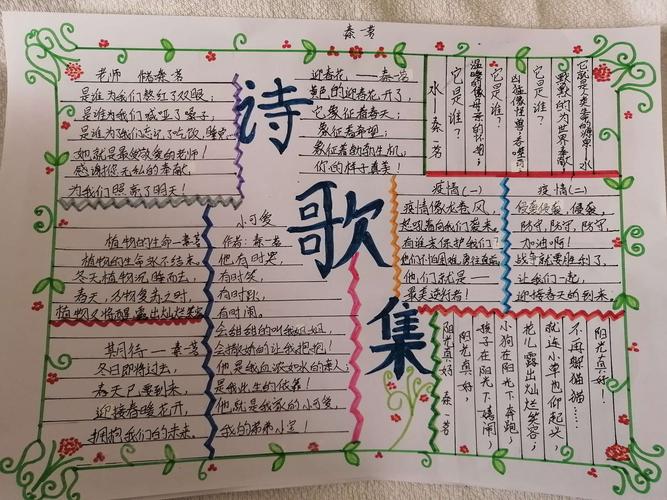 秦芳
诗歌集
老师 储秦芳
是谁为我们熬红了双眼;
是谁为我们喊哑了嗓子;
是谁为我们忘记了吃饭、睡觉
她就是最受敬爱的老师!
感谢你无私的奉献,
为我们照亮了明天!
迎春花,——秦芳
黄色的迎春花开了,
它象征着春天;
象征着希望;
象征着勃勃生机,
你的样子真美!
水——秦芳
它是谁?
温暖的像母亲的怀抱;
它是谁?
凶猛像怪兽;
它是谁?
默默的为世界奉献,
它就是人类生命的源泉:水
疫情(一)
疫情像龙卷风,
起吼着向我们袭来。
有谁来保护我们?
他们不怕困难,勇往直前
他们就是——
最美逆行者!
疫情(二)
侵袭侵袭,侵袭,
防守,防守,防守,
加油啊!
战争就要胜利了,
让我们一起,
迎接春天的到来。
植物的生命—秦芳
植物的生命永不结束。
冬天植物沉睡而去,
春天,万物复苏之时,
植物又将醒露出灿烂笑容
期待——秦芳
冬日即将过去,
春天已要到来,
迎接春暖花开,
拥抱我们的未来。
小可爱
作者:秦芳
他,有时哭,
有时笑,
有时趴,
有时闹。
会甜甜的叫我姐姐,
会撒娇的让我抱抱!
他是我血浓如水的亲人;
是我此生的依靠!
他就是我家的小可爱,
我的弟弟小宝!
阳光真好 秦芳
阳光真好,
孩子在阳光下嬉闹
小狗在阳光下奔跑;
花儿露出灿烂笑容;
就连小草也仰起头,
不再躲猫猫……
阳光真好!